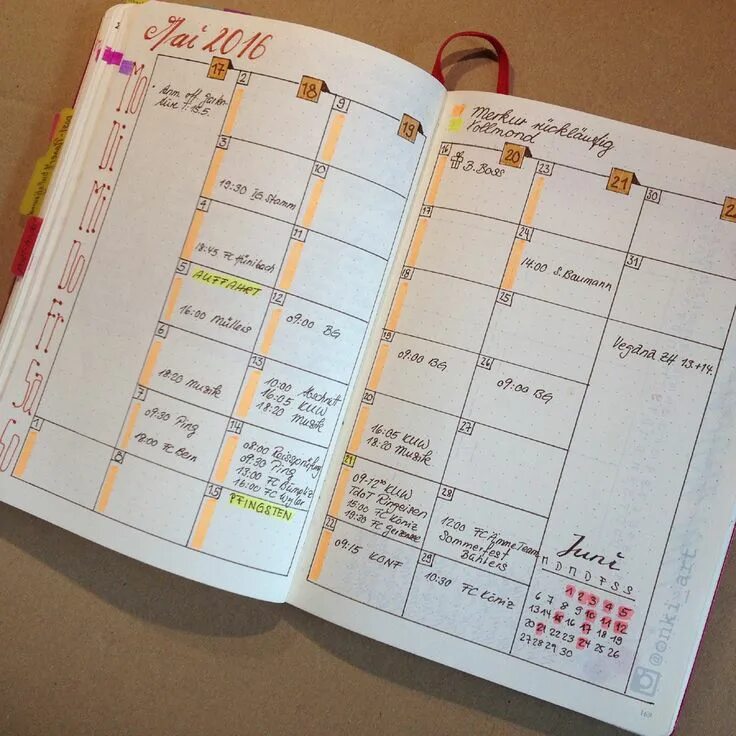 Mai 2016
Merkur rückläufig
Vollmond
Mo
Di
Mi
Do
Fr
Sa
So
17
1
2
3
19:30 IG Stamm
4
18:45 FC Hünibach
5
AUFFAHRT
16:00 Müllers
6
18:20 Musik
7
09:30 Ping
18:00 FC Bern
8
18
9
10
11
12
09:00 BG
13
10:00 Abschnitt
16:05 KUW
18:20 Musik
14
08:00 Reisprüfung
09:30 Ping
13:00 FC Bümpliz
16:00 FC Wyler
15
PFINGSTEN
19
16
B. Boss
17
18
19
09:00 BG
20
16:05 KUW
18:20 Musik
21
KUW
TdoT Ringeisen
15:00 FC Köniz
19:30 FC
22
09:15 KONF
20
23
24
14:00 S. Baumann
25
26
09:00 BG
27
28
12:00 FC Ämme Team
Sommerfest
Bählers
29
10:30 FC Köniz
21
30
31
Vegana 24 13.+14.
Juni
M D M D F S S
1 2 3 4 5
6 7 8 9 10 11 12
13 14 15 16 17 18 19
20 21 22 23 24 25 26
27 28 29 30
@onki_art